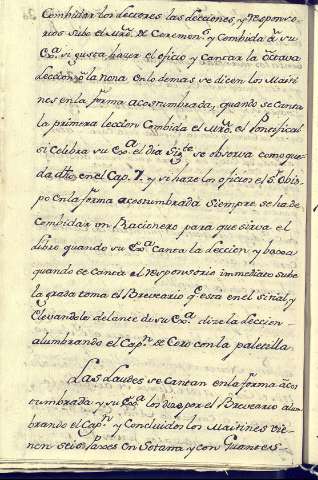 Combidar los lectores las lecciones, y responso-
rios sube el Mrõ. de Ceremons. y Combida âsu
Exa. si gusta hazer el oficio y cantar la Octava
leccion, ô la nona en lo demas se dicen los Maiti
nes en la forma acostumbrada, quando se canta
la primera leccion Combida el Mrõ. el Pontifical
si celebra su Exa. el dia Sigte. se observa como que
da dho. en el Cap. 7. y si haze los oficios el Sr. Obis-
po en la forma acostumbrada Siempre se ha de
combidar un Racionero para que sirva el
libro quando su Exa. Canta la Leccion y baxa
quando se canta el responsorio immediato sube
la grada toma el Breveario q. esta en el sitial y
llevandolo delante de su Exa. dize la leccion
alumbrando el Capn. de Coro con la paletilla.
Las Laudes se cantan en la forma acos
tumbrada y su Exa. los dize por el Breveario alum
brando el Capn. y Concluidos los Maitines vie-
nen seis Pajes en Sotana y con Guantes